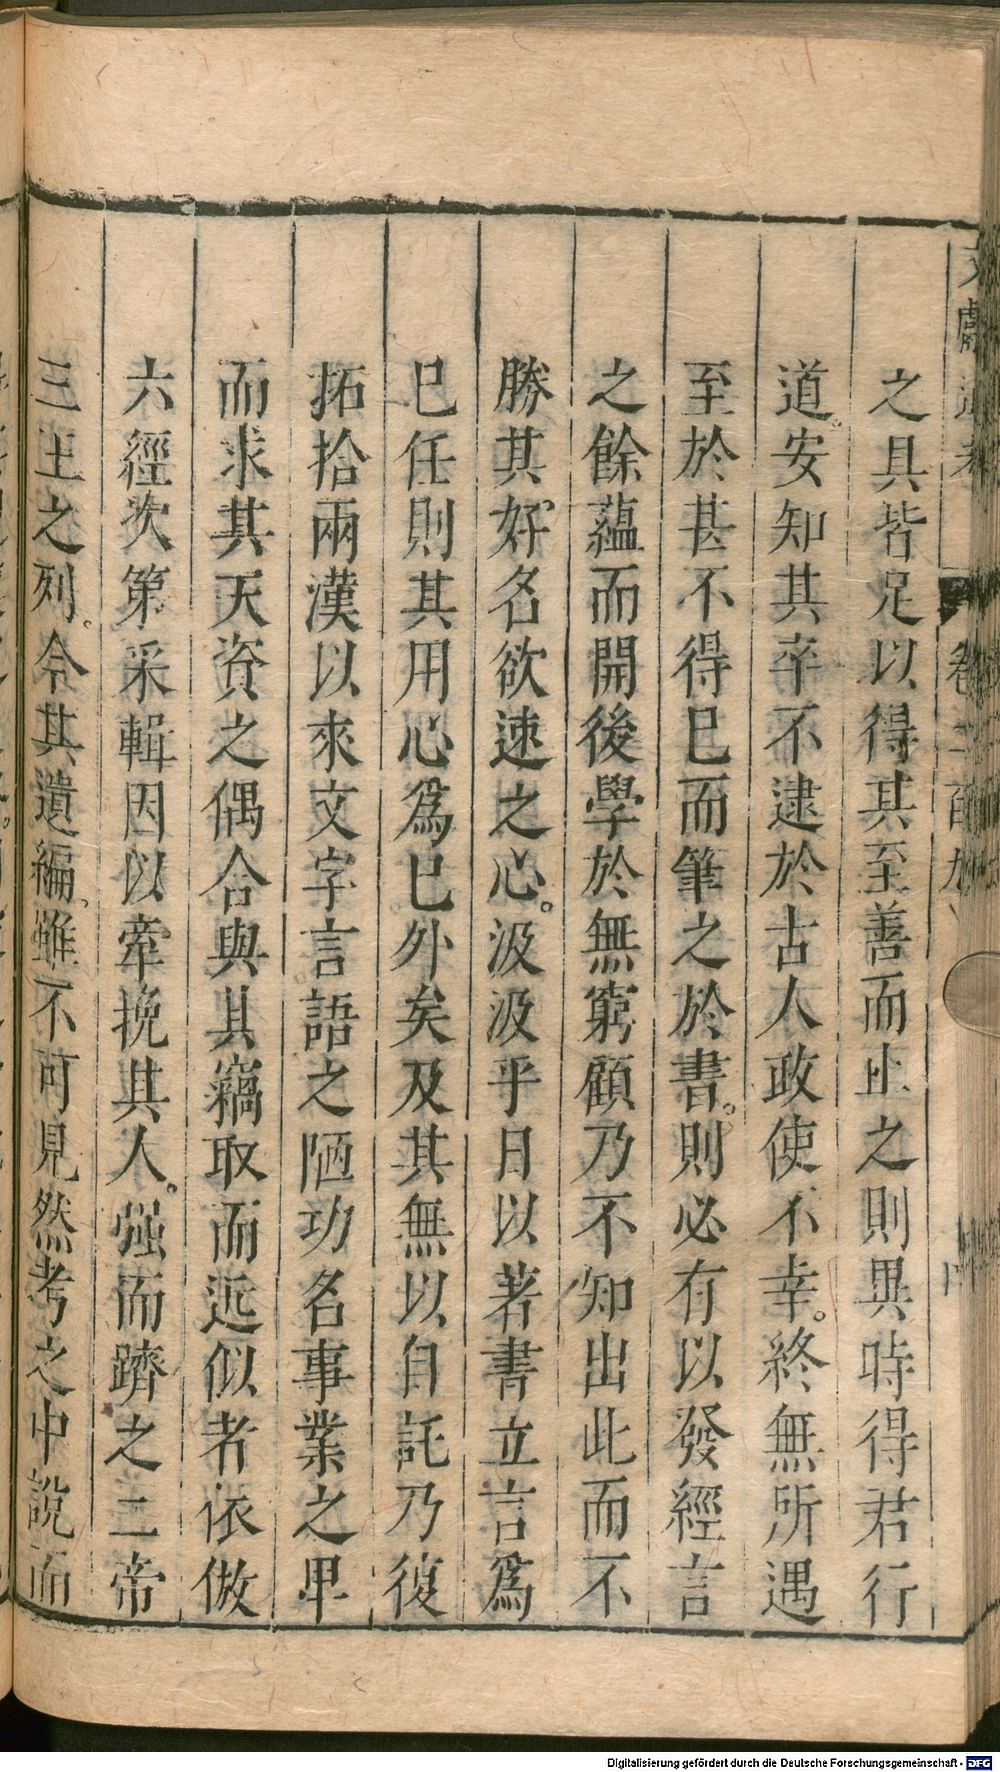 文獻通考 卷二百九
之具皆足以得其至善而止之則異時得君行
道安知其卒不逮於古人政使不幸終無所遇
至於甚不得已而筆之於書則必有以發經言
之餘蘊而開後學於無窮顧乃不知出此而不
勝其好名欲速之心汲汲乎日以著書立言爲
已任則其用心爲已外矣及其無以自託乃復
拓拾兩漢以來文字言語之陋功名事業之卑
而求其天資之偶合與其竊取而近似者依倣
六經次第采輯因以牽挽其人强而躋之二帝
三王之列今其遺編雖不可見然考之中說而
Digitalisierung gefördert durch die Deutsche Forschungsgemeinschaft - DFG